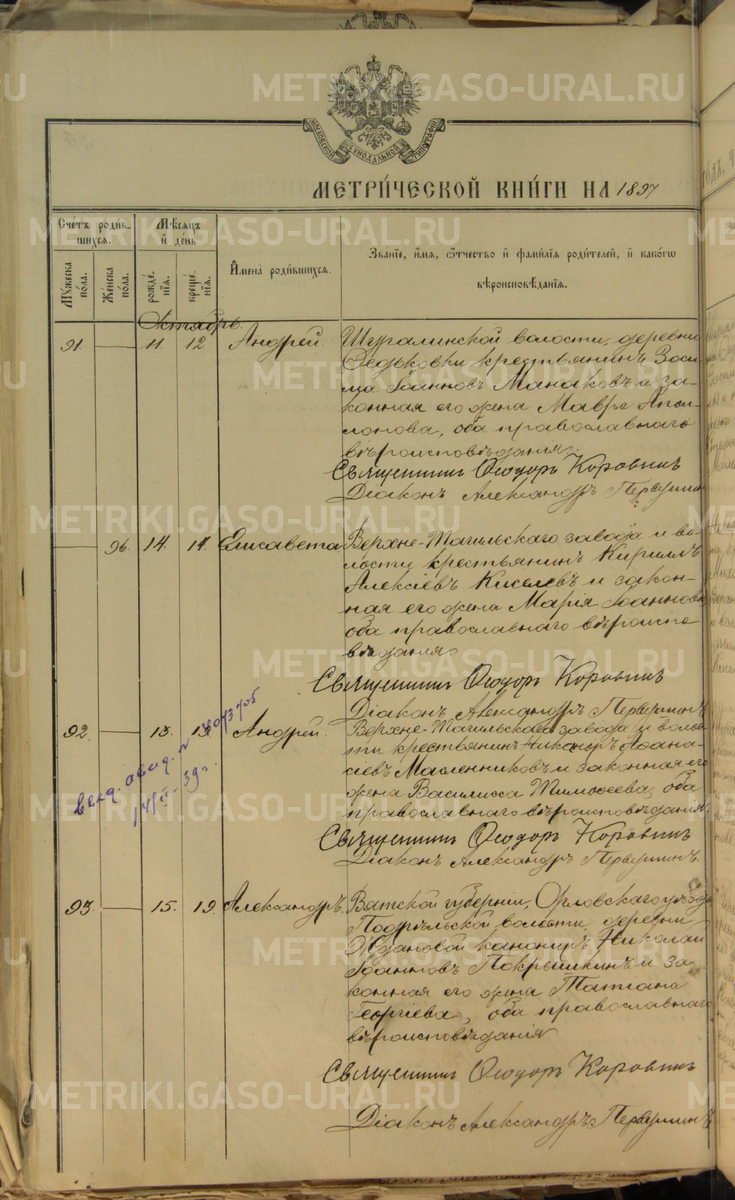 МОСКОВСКОЙ СѴНОДАЛЬНОЙ ТИПОГРАФІИ
МЕТРИ́ЧЕСКОЙ КНИ́ГИ НА 1897
Сче́тъ роди́в-
шихся.
Мѣ́сяцъ
и҆ де́нь
И҆мена̀ роди́вшихся.
Зва́нїе, и҆́мя, ѻ҆́тчество и҆ фамилі́я роди́телей, и҆ како́гѡ
вѣроисповѣ́данїя.
Мꙋ́жеска
по́ла.
Же́нска
по́ла.
рожде́-
нїя.
креще́-
нїя.
Октябрь
91. — 11 12 Андрей
Шуралинской волости, деревни
Ѳедьковки крестьянинъ Зоси-
ма Іоанновъ Манаковъ и за-
конная его жена Мавра Апол-
лонова, оба православнаго
вѣроисповѣданія.
Священникъ Ѳеодоръ Коровинъ
Діаконъ Александръ Первушинъ
— 96. 14. 14. Елисавета
Верхне-Тагильскаго завода и во-
лости крестьянинъ Кириллъ
Алексіевъ Киселевъ и закон-
ная его жена Марія Іоаннова
оба православнаго вѣроиспо-
вѣданія.
Священникъ Ѳеодоръ Коровинъ
Діаконъ Александръ Первушинъ
92. — 13. Андрей.
Верхне-Тагильскаго завода и волос-
ти крестьянинъ Никоноръ Аѳана-
сіевъ Масленниковъ и законная его
жена Василисса Тимоѳеева, оба
православнаго вѣроисповѣданія.
Священникъ Ѳеодоръ Коровинъ
Діаконъ Александръ Первушинъ.
93. — 15. 19. Александръ.
Вятской губерніи, Орловскаго уѣзда
волости, деревни
Ждановой Николай
Іоанновъ Покрышкинъ и за-
конная его жена Татіана
Георгіева, оба православнаго
вѣроисповѣданія
Священникъ Ѳеодоръ Коровинъ
Діаконъ Александръ Первушинъ
METRIKI.GASO-URAL.RU